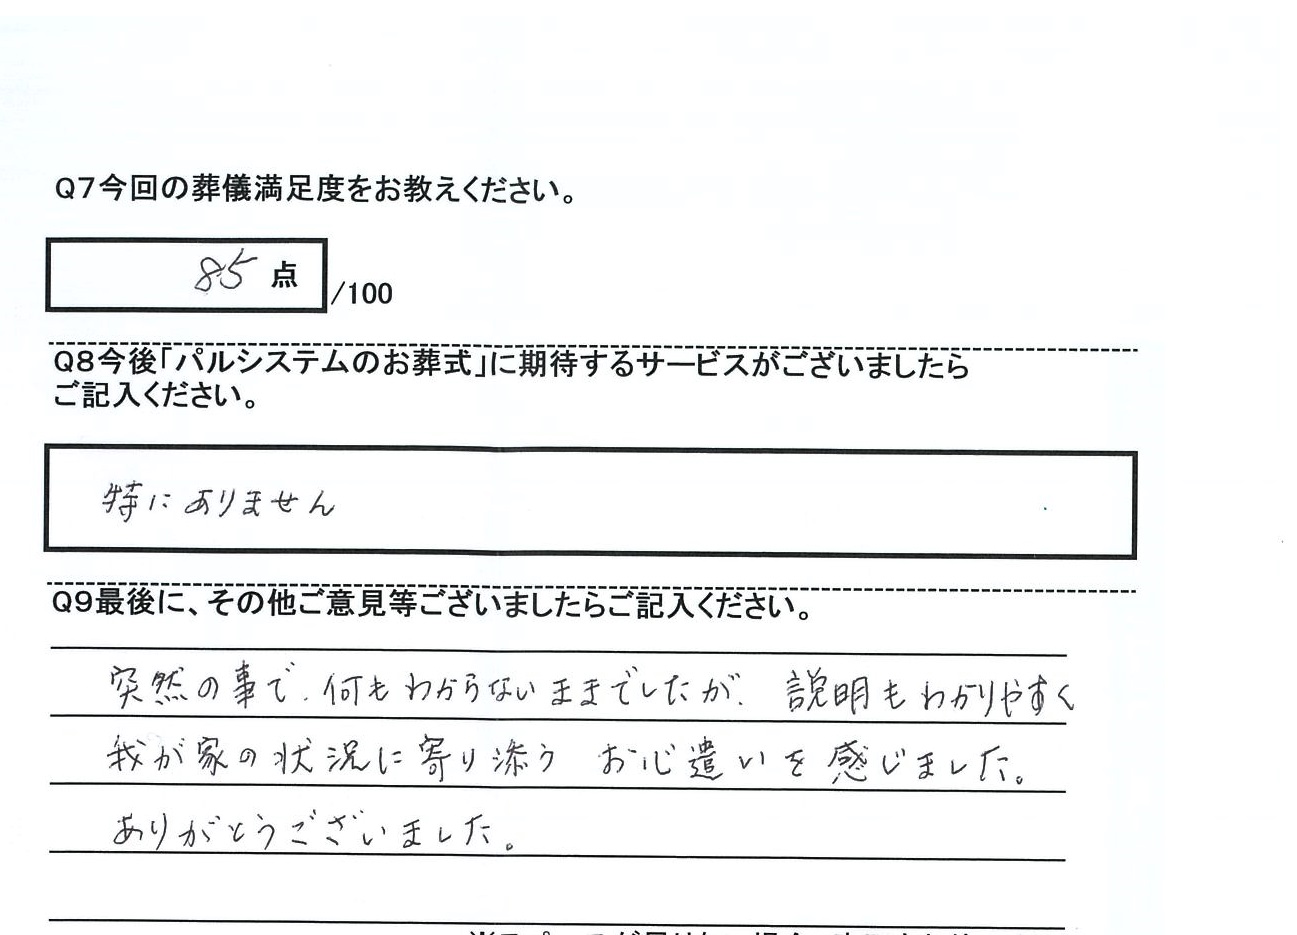 Q7今回の葬儀満足度をお教えください。
85 点
/100
Q8今後「パルシステムのお葬式」に期待するサービスがございましたら
ご記入ください。
特にありません
Q9最後に、その他ご意見等ございましたらご記入ください。
突然の事で、何もわからないままでしたが、説明もわかりやすく
我が家の状況に寄り添う お心遣いを感じました。
ありがとうございました。